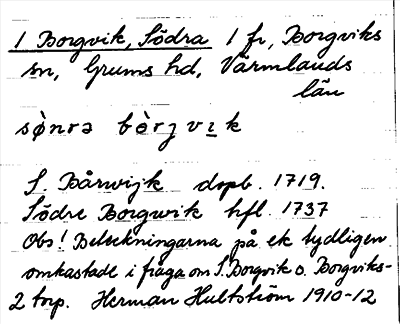 1 Borgvik, Södra 1 fr, Borgviks
sn, Grums hd, Värmlands
län
sǫ̀nrə bǫ̀rjvik
S. Bårwijk dopb. 1719.
Södre Borgwik hfl. 1737
Obs! Beteckningarna på ek tydligen
omkastade i fråga om S. Borgvik o. Borgviks-
2 torp. Herman Hultström 1910-12